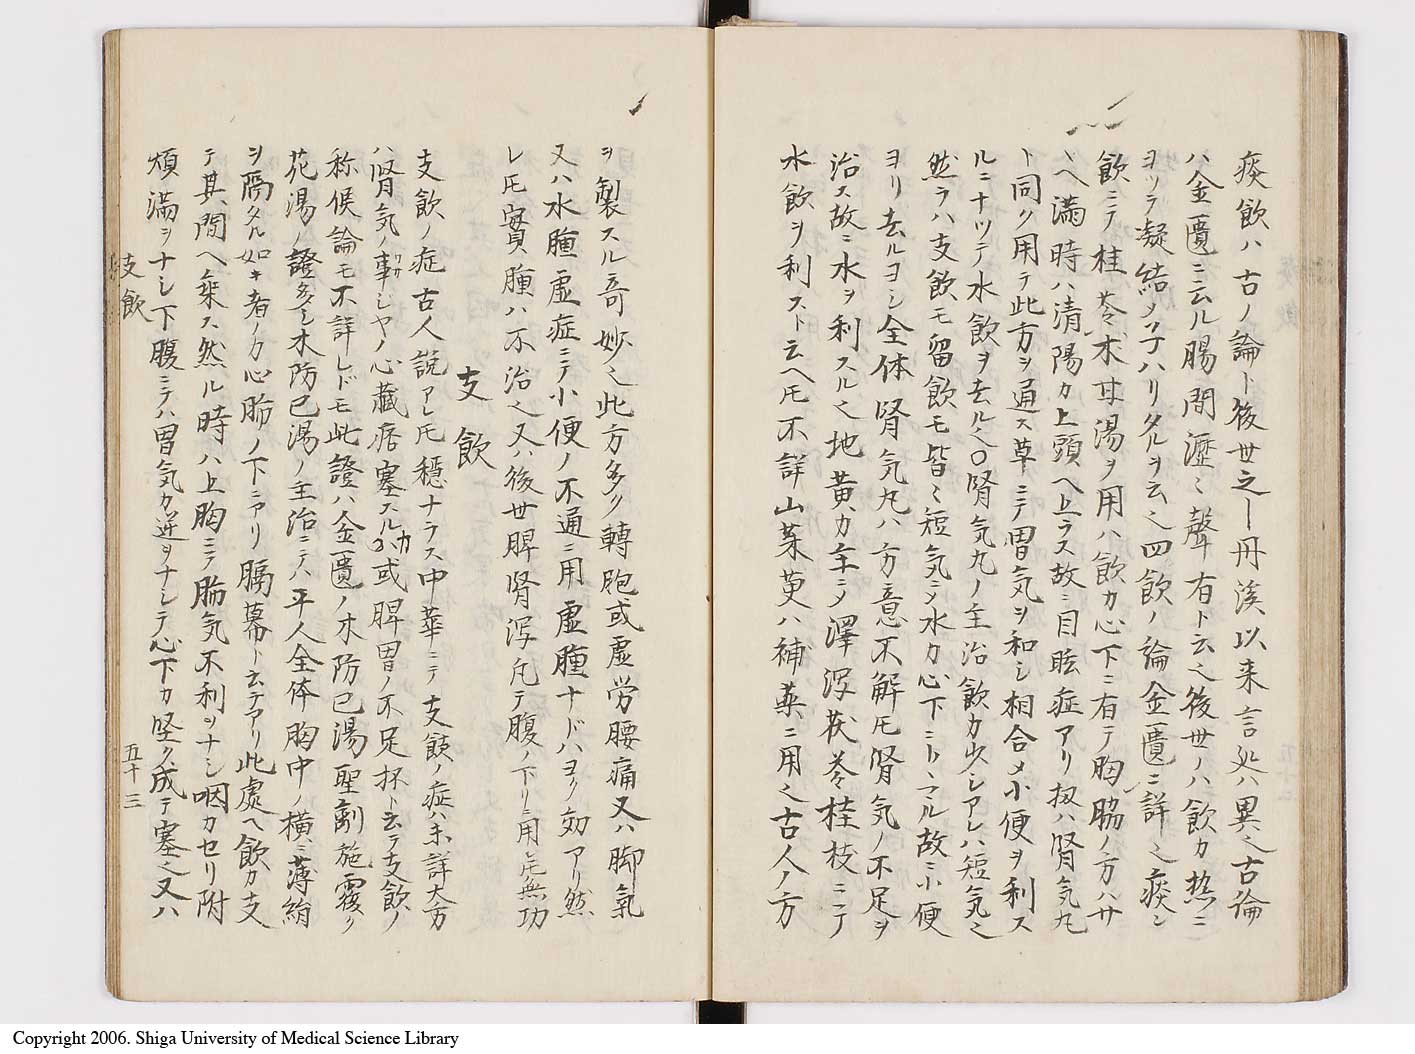 痰飲ハ古ノ論ト後世之ー丹溪以来言処ハ異之古論
ハ金匱ニ云ル腸間瀝〻聲有ト云之後世ノハ飲カ熱ニ
ヨソラ凝結ノ子ハリタルヲ云之四飲ノ論金匱ニ詳之痰シ
飲ニテ桂苓朮甘湯ヲ用ハ飲カ心下ニ有テ胸脇ノ方ハサ
ヽヘ満時ハ清陽カ上頭ヘ上ラス故ニ目眩症アリ扨ハ腎気丸
ト同ク用テ此方ヲ通ス草ニテ胃気ヲ和シ相合メ小便ヲ利ス
ルニナツテ水飲ヲ去ル之〇腎気丸ノ主治飲カ少シアレハ短気之
然ラハ支飲モ留飲モ皆〻短気ニシテ水カ心下ニトヽマル故ニ小便
ヨリ去ルヨシ全体腎気丸ハ方意不解𪜈腎気ノ不足ヲ
治ス故ニ水ヲ利スル之地黄カ主ニシテ澤瀉茯苓桂枝ニテ
水飲ヲ利スト云ヘ𪜈不詳山茱萸ハ補薬ニ用之古人ノ方
ヲ製スル奇妙之此方多ク轉胞或虚労腰痛又ハ脚氣
又ハ水腫虚症ニテ小便ノ不通ニ用虚腫ナドハヨク効アリ然
レ𪜈實腫ハ不治之又ハ後世脾腎瀉凡テ腹ノ下リニ用𪜈無功
支飲
支飲ノ症古人説アレ𪜈穏ナラス中華ニテ支飲ノ症ハ未詳大方
ハ腎気ノ事シヤノ心藏痞塞スルカノ或脾胃ノ不足抔ト云テ支飲ノ
称候論モ不詳レドモ此證ハ金匱ノ木防已湯聖剤施覆ク
花湯ノ證多シ木防已湯ノ主治ニテハ平人全体胸中ノ横ニ薄絹
ヲ隔タル如キ者ノカ心肺ノ下ニアリ膈幕ト云テアリ此處ヘ飲カ支
テ其間ヘ乗ス然ル時ハ上胸ニテ肺気不利ヲナシ咽カセリ附
煩満ヲナシ下腹ニテハ胃気カ逆ヲナシテ心下カ堅ク成テ塞之又ハ
支飲
五十三